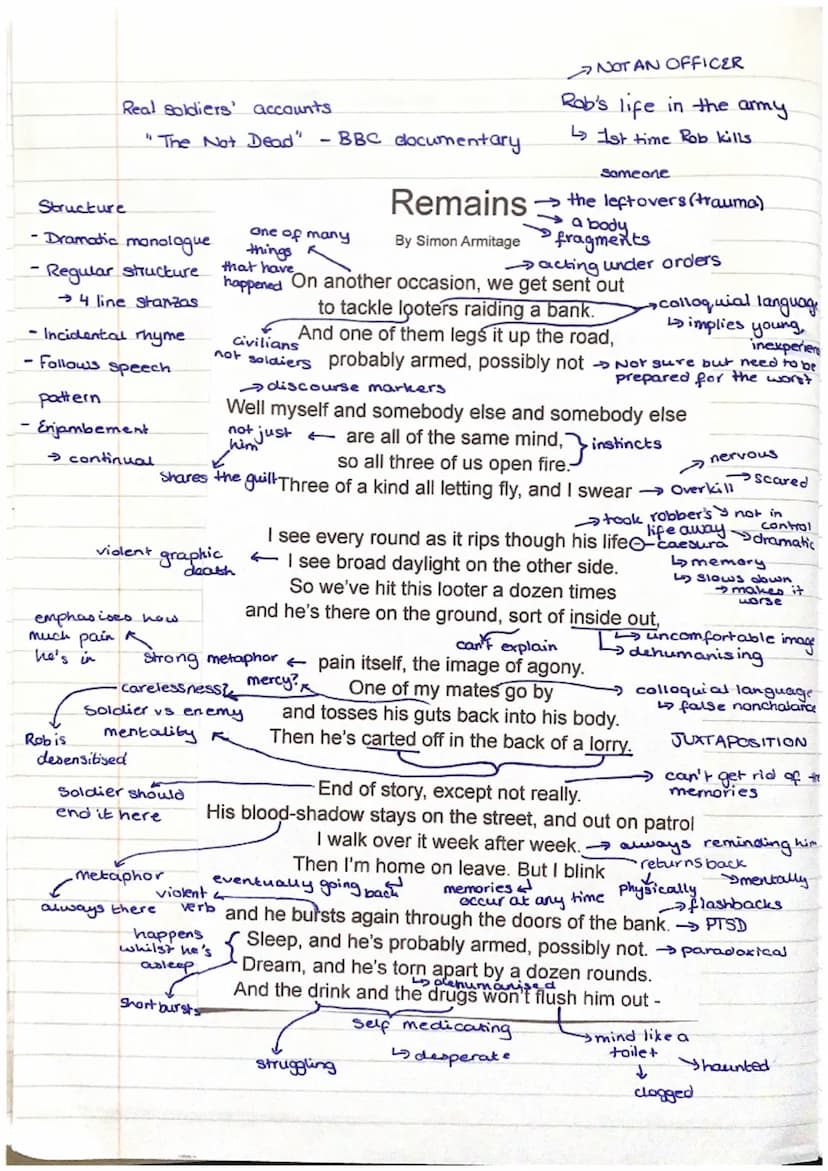 → NOT AN OFFICER
Real soldiers' accounts
Rob's life in the army
"The Not Dead" - BBC documentary
↳ 1st time Rob kills
someone
Structure
- Dramatic monologue
- Regular structure
→ 4 line stanzas
- Incidental rhyme
- Follows speech
pattern
- Enjambement
→ continual
Remains
→ the leftovers (trauma)
→ a body
→ fragments
By Simon Armitage
one of many
things
that have
happened
→ acting under orders
On another occasion, we get sent out
to tackle looters raiding a bank.
→ colloquial language
↳ implies young,
inexperien
civilians
not soldiers
And one of them legs it up the road,
probably armed, possibly not
→ Not sure but need to be
prepared for the worst
→ discourse markers
Well myself and somebody else and somebody else
not just
him
are all of the same mind,
instincts
so all three of us open fire.
shares the guilt
Three of a kind all letting fly, and I swear
→ Overkill
→ nervous
→ scared
→ not in
control
→ dramatic
→ took robber's
life away
I see every round as it rips though his life
- caesura
↳ memory
↳ slows down
→ makes it
worse
violent graphic
death
I see broad daylight on the other side.
So we've hit this looter a dozen times
and he's there on the ground, sort of inside out,
can't explain
↳ uncomfortable image
↳ dehumanising
emphasises how
much pain
he's in
strong metaphor
pain itself, the image of agony.
carelessness?
mercy?
One of my mates go by
→ colloquial language
↳ false nonchalance
Rob is
desensitised
Soldier vs enemy
mentality
and tosses his guts back into his body.
Then he's carted off in the back of a lorry.
JUXTAPOSITION
→ can't get rid of the
memories
Soldier should
end it here
End of story, except not really.
His blood-shadow stays on the street, and out on patrol
I walk over it week after week.
→ always reminding him
Then I'm home on leave. But I blink
returns back
physically
→ mentally
metaphor
always there
eventually going back
memories
occur at any time
→ flashbacks
violent
verb
and he bursts again through the doors of the bank.
→ PTSD
happens
whilst he's
asleep
Sleep, and he's probably armed, possibly not.
→ paradoxical
Dream, and he's torn apart by a dozen rounds.
↳ dehumanised
short bursts
And the drink and the drugs won't flush him out -
self medicating
↳ desperate
struggling
→ mind like a
toilet
↓
clogged
→ haunted